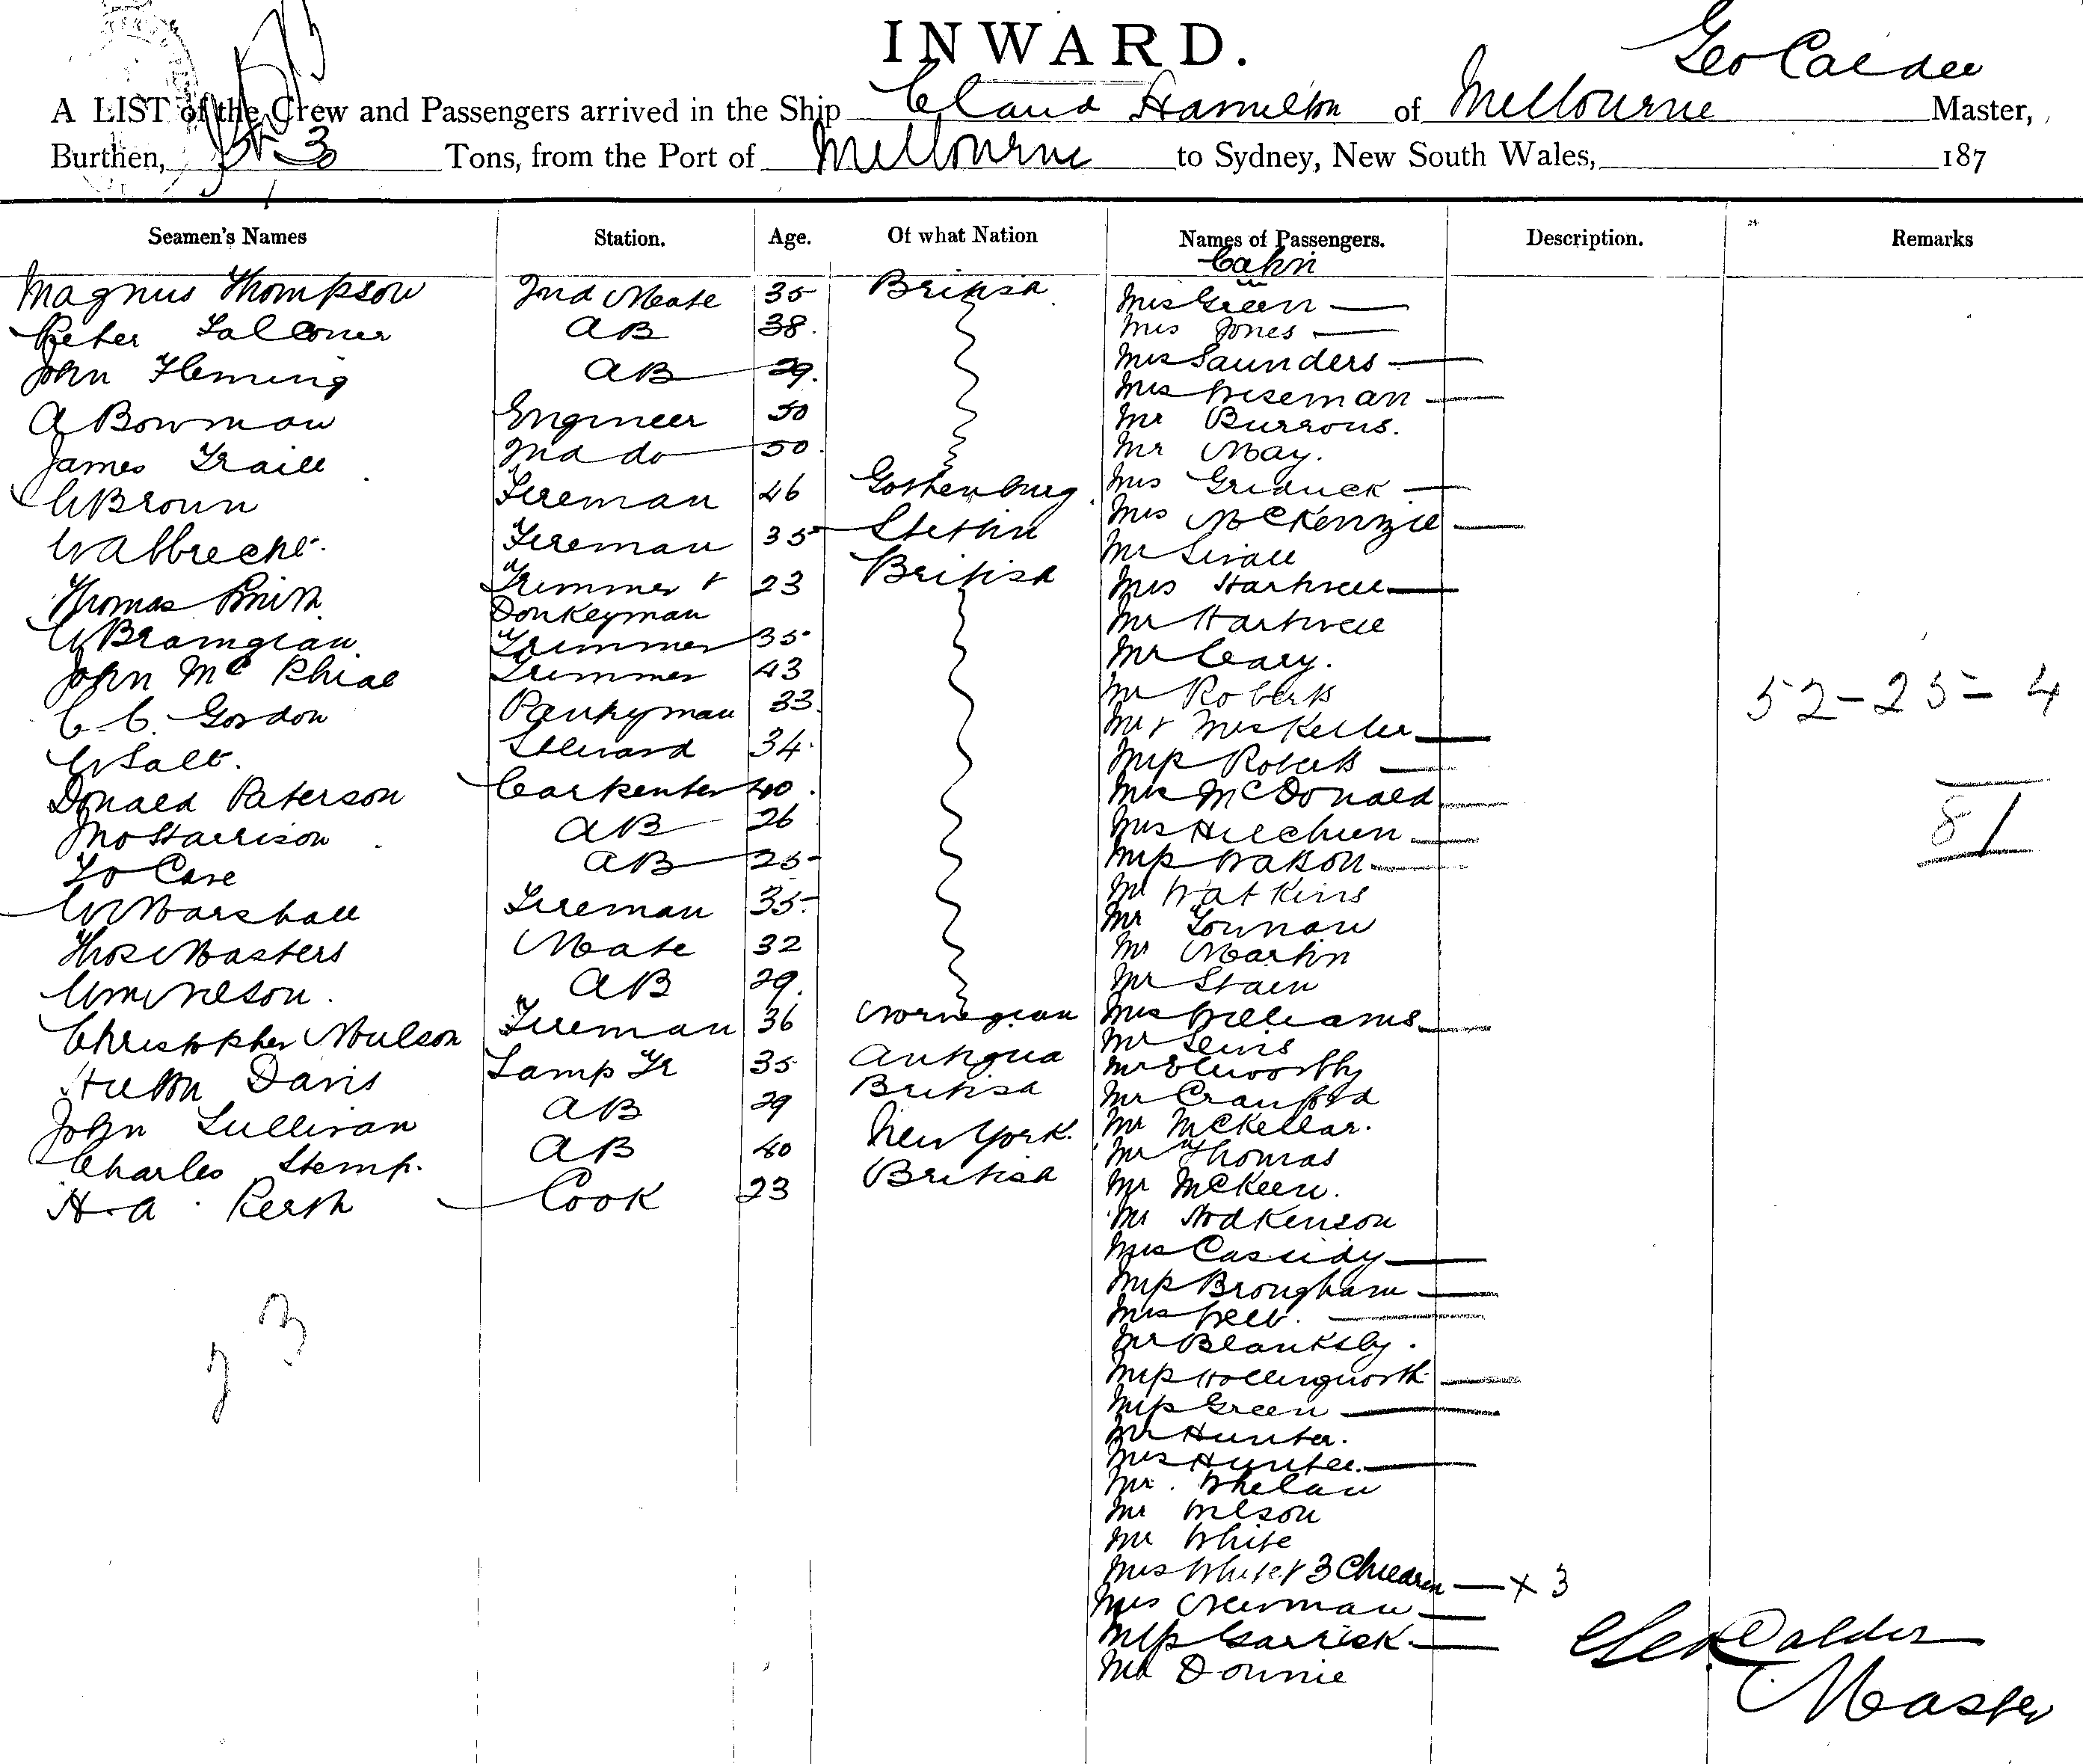 INWARD.
Geo Calder
A LIST of the Crew and Passengers arrived in the Ship Claud Hamilton of Melbourne Master,
Burthen, Tons, from the Port of Melbourne to Sydney, New South Wales, 187
Seamen's Names Station. Age. Of what Nation Names of Passengers. Description. Remarks
Cabin
Magnus Thompson 2nd Mate 35 British Mrs Green
Peter Falconer AB 38. Mrs Jones
John Fleming AB 29. Mrs Saunders
Mrs Wiseman
A Bowman Engineer 50 Mr Burrows.
James Traill 2nd do 50. Mr May.
W Brown Fireman 46 Gothenburg Mrs
Mrs McKenzie
W Albrecht. Fireman 35 Stettin Mr
Thomas Smith Trimmer & 23 British Mrs Hartwell
Donkeyman Mr Hartwell
W Trimmer 35 Mr Cary.
John McPhial Trimmer 43 Mr Roberts
C. C. Gordon Pantryman 33. Mr & Mrs Keller
W Salt. Steward 34. Miss Roberts
Donald Paterson Carpenter 40. Mrs McDonald
52-25-4
Jno Harrison AB 26 Mrs
81
AB 25 Miss Watson
Mr Watkins
W Marshall Fireman 35. Mr
Thos Masters Mate 32 Mr Martin
Wm Nelson. AB 29. Mr Stain
Christopher Moulson Fireman 36 Norwegian Mrs Williams
Mr Lewis
Hilton Davis Lamp Tr 35 Antigua Mr Elworthy
John Sullivan AB 29 British Mr Cranford
Mr McKellar.
Charles Stemp. AB 40 New York. Mr Thomas
H. A. Perth Cook 23 British Mr McKeen.
Mr Hodkenson
Mrs Cassidy
Miss Brougham
Mrs Webb.
23
Mr Blanksby.
Miss Hollingworth
Miss Green
Mr Hunter.
Mrs Hunter.
Mr. Whelan
Mr Wilson
Mr White
Mrs White & 3 Children x 3
Mrs Newman
Miss Garrick
Mr Downie
Geo Calder
Master